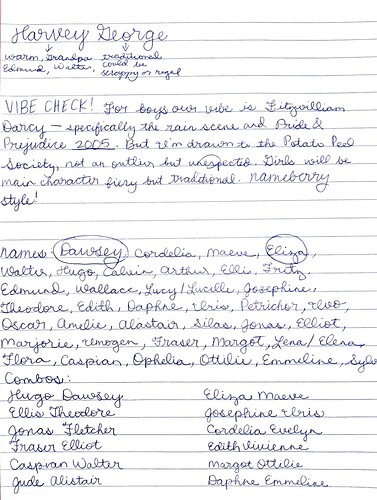 Harvey George
warm, Grandpa traditional
Edmund, Walter, could be
scrappy or regal
VIBE CHECK! For boys our vibe is Fitzwilliam
Darcy - specifically the rain scene and Pride &
Prejudice 2005. But I'm drawn to the Potato Peel
Society, not an outlier but unexpected. Girls will be
main character fiery but traditional. nameberry
style!
names Dawsey, Cordelia, Maeve, Eliza,
Walter, Hugo, Calvin, Arthur, Ellis, Fritz,
Edmund, Wallace, Lucy/Lucille, Josephine,
Theodore, Edith, Daphne, Iris, Petrichor, Ivo,
Oscar, Amelie, Alastair, Silas, Jonas, Elliot,
Marjorie, Imogen, Fraser, Margot, Lena/Elena,
Flora, Caspian, Ophelia, Ottilie, Emmeline,
Combos:
Hugo Dawsey Eliza Maeve
Ellis Theodore Josephine Iris
Jonas Fletcher Cordelia Evelyn
Fraser Elliot Edith Vivienne
Caspian Walter Margot Ottilie
Jude Alistair Daphne Emmeline